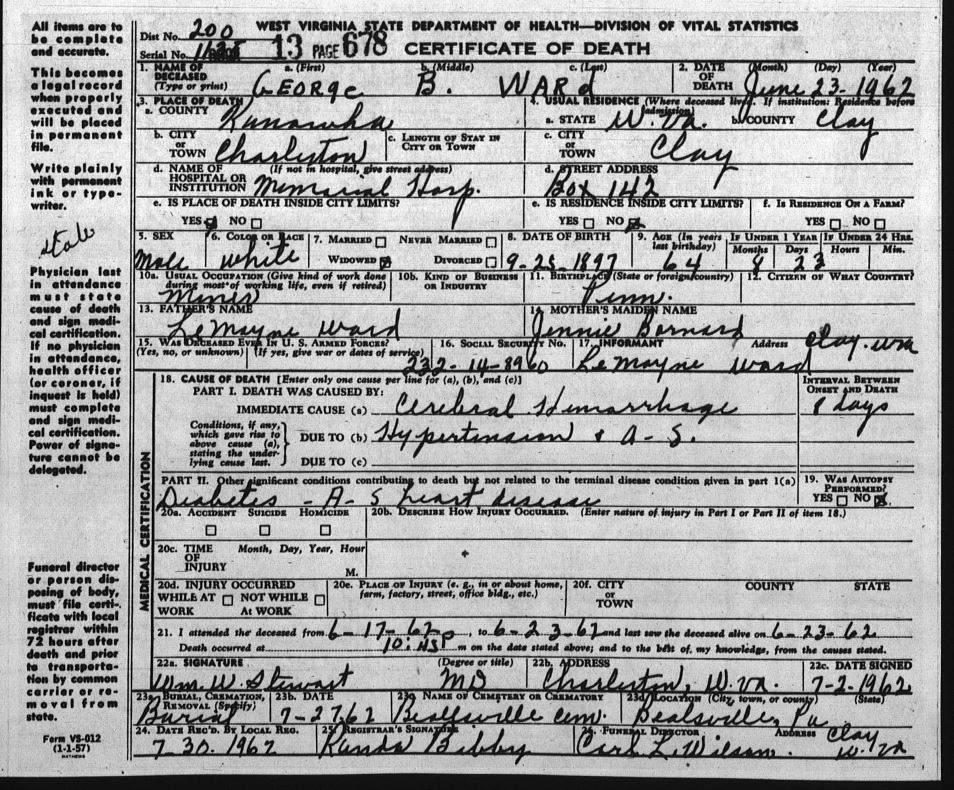 WEST VIRGINIA STATE DEPARTMENT OF HEALTH—DIVISION OF VITAL STATISTICS
Dist No. 200
Serial No. 13 PAGE 678 CERTIFICATE OF DEATH
All items are to be complete and accurate.
This becomes a legal record when properly executed and will be placed in permanent file.
Write plainly with permanent ink or typewriter.
state
Physician last in attendance must state cause of death and sign medical certification. If no physician in attendance, health officer (or coroner, if inquest is held) must complete and sign medical certification. Power of signature cannot be delegated.
Funeral director or person disposing of body, must file certificate with local registrar within 72 hours after death and prior to transportation by common carrier or removal from state.
Form VS-012
(1-1-57)
MATHEWS
1. NAME OF DECEASED (Type or print) a. (First) b. (Middle) c. (Last) 2. DATE OF DEATH (Month) (Day) (Year)
GEORGE B. WARd June 23-1962
3. PLACE OF DEATH 4. USUAL RESIDENCE (Where deceased lived. If institution: Residence before admission)
a. COUNTY Kanawha a. STATE W. Va. b. COUNTY Clay
b. CITY OR TOWN Charleston c. LENGTH OF STAY IN CITY OR TOWN c. CITY OR TOWN Clay
d. NAME OF HOSPITAL OR INSTITUTION (If not in hospital, give street address) Memorial Hosp. d. STREET ADDRESS Box 142
e. IS PLACE OF DEATH INSIDE CITY LIMITS? e. IS RESIDENCE INSIDE CITY LIMITS? f. IS RESIDENCE ON A FARM?
YES NO YES NO YES NO
5. SEX 6. COLOR OR RACE 7. MARRIED NEVER MARRIED 8. DATE OF BIRTH 9. AGE (In years last birthday) IF UNDER 1 YEAR IF UNDER 24 HRS.
Months Days Hours Min.
Male White WIDOWED DIVORCED 9-25-1897 64 8 23
10a. USUAL OCCUPATION (Give kind of work done during most of working life, even if retired) 10b. KIND OF BUSINESS OR INDUSTRY 11. BIRTHPLACE (State or foreign country) 12. CITIZEN OF WHAT COUNTRY?
Miner Penn.
13. FATHER'S NAME 14. MOTHER'S MAIDEN NAME
LeMayne Ward Jennie Barnard
15. WAS DECEASED EVER IN U. S. ARMED FORCES? 16. SOCIAL SECURITY NO. 17. INFORMANT Address Clay. WVa
(Yes, no, or unknown) (If yes, give war or dates of service) 232-14-8960 LeMayne Ward
MEDICAL CERTIFICATION
18. CAUSE OF DEATH [Enter only one cause per line for (a), (b), and (c)] INTERVAL BETWEEN ONSET AND DEATH
PART I. DEATH WAS CAUSED BY:
IMMEDIATE CAUSE (a) Cerebral Hemorrhage 8 days
Conditions, if any, which gave rise to above cause (a), stating the underlying cause last.
DUE TO (b) Hypertension & A-S.
DUE TO (c)
PART II. Other significant conditions contributing to death but not related to the terminal disease condition given in part 1(a) 19. WAS AUTOPSY PERFORMED?
Diabetes - A-S heart disease YES NO
20a. ACCIDENT SUICIDE HOMICIDE 20b. DESCRIBE HOW INJURY OCCURRED. (Enter nature of injury in Part I or Part II of item 18.)
20c. TIME OF INJURY Month, Day, Year, Hour M.
20d. INJURY OCCURRED 20e. PLACE OF INJURY (e. g., in or about home, farm, factory, street, office bldg., etc.) 20f. CITY OR TOWN COUNTY STATE
WHILE AT WORK NOT WHILE AT WORK
21. I attended the deceased from 6-17-62, to 6-23-62 and last saw the deceased alive on 6-23-62
Death occurred at m on the date stated above; and to the best of my knowledge, from the causes stated.
22a. SIGNATURE (Degree or title) 22b. ADDRESS 22c. DATE SIGNED
Wm. W. Stewart MD Charleston, W. Va. 7-2-1962
23a. BURIAL, CREMATION, REMOVAL (Specify) 23b. DATE 23c. NAME OF CEMETERY OR CREMATORY 23d. LOCATION (City, town, or county) (State)
Burial 7-27-62 Beallsville Cem. Bealsville, Pa
24. DATE REC'D. BY LOCAL REG. 25. REGISTRAR'S SIGNATURE 26. FUNERAL DIRECTOR ADDRESS Clay
7-30-1962 Bibby Carl L. Wilson. W. Va